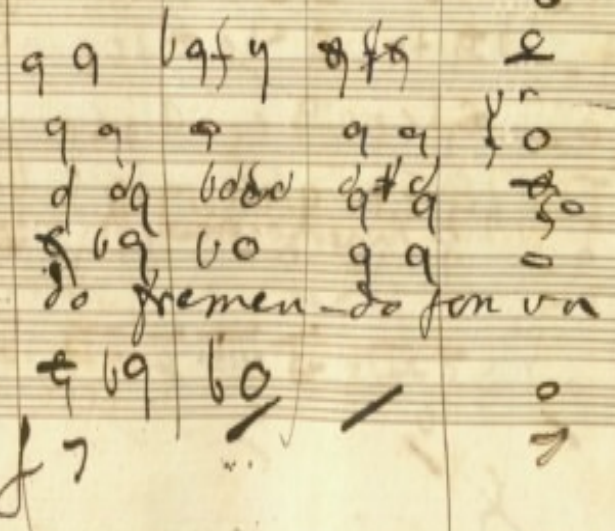 do fremen-do fon un